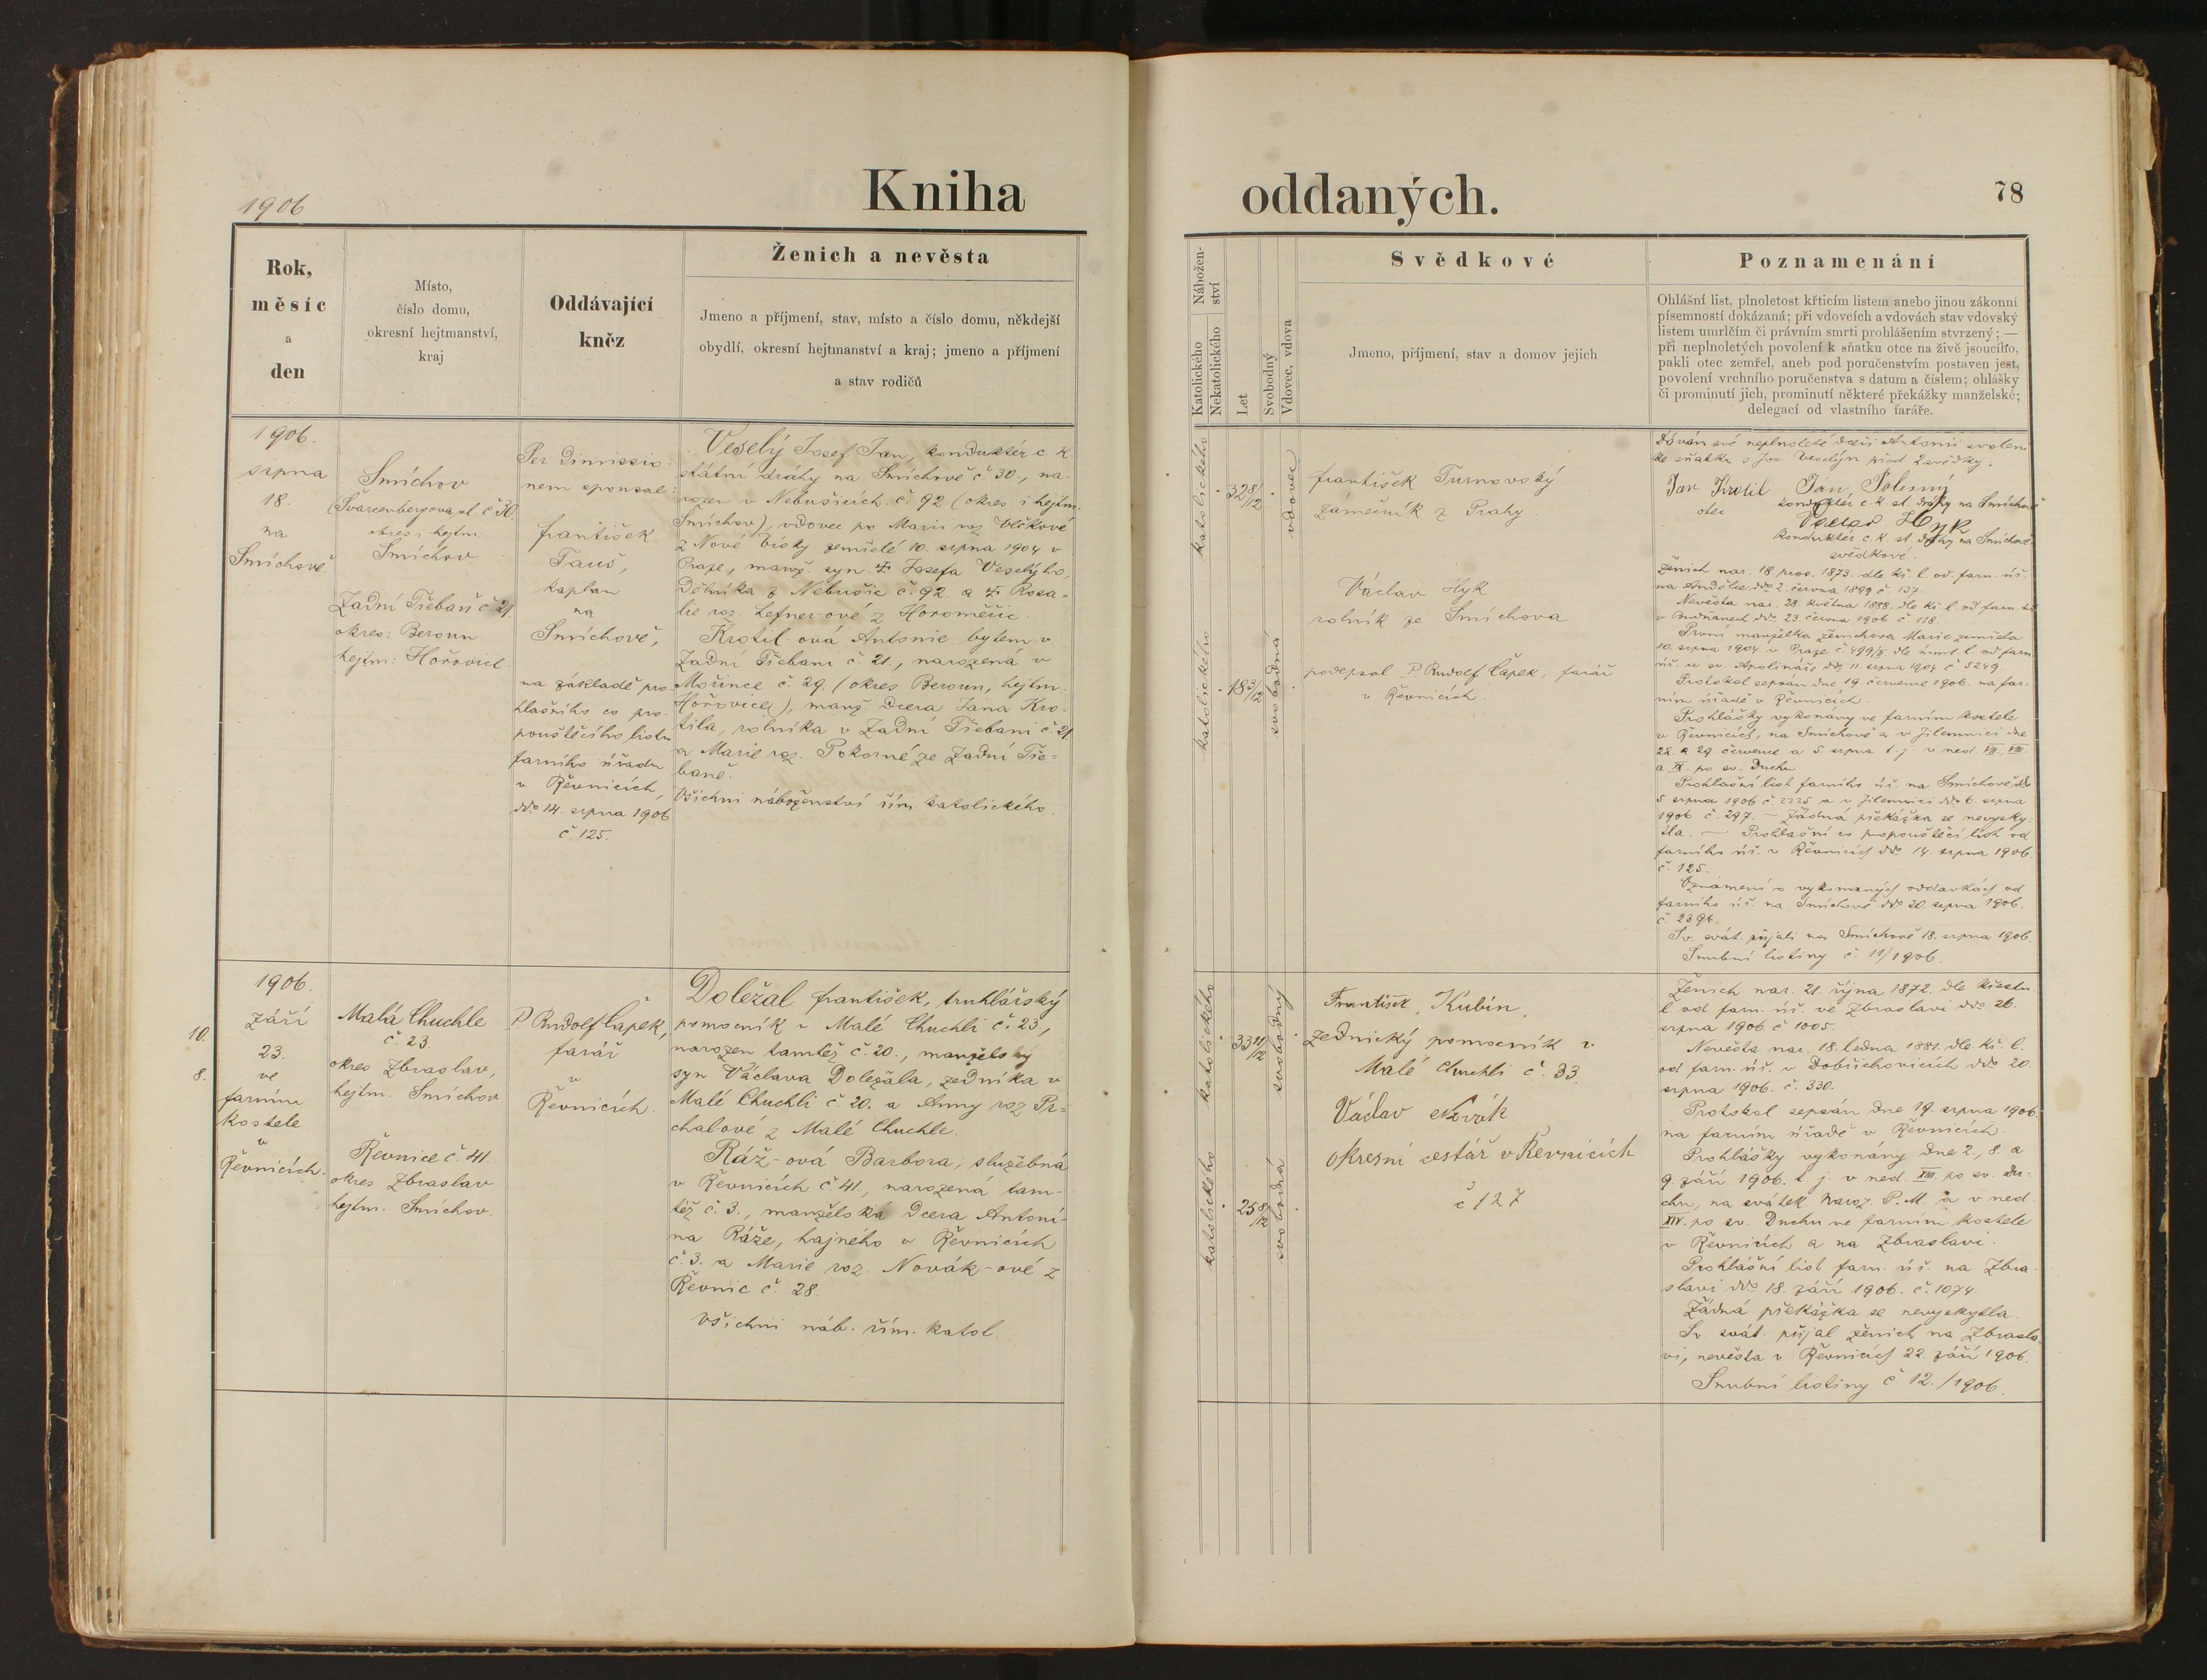 1906
Kniha
oddaných.
78
Rok,
měsíc
a
den
Místo,
číslo domu,
okresní hejtmanství,
kraj
Oddávající
kněz
Ženich a nevěsta
Jmeno a příjmení, stav, místo a číslo domu, někdejší
obydlí, okresní hejtmanství a kraj; jmeno a příjmení
a stav rodičů
Nábožen-
ství
Katolického
Nekatolického
Let
Svobodný
Vdovec, vdova
Svědkové
Jmeno, příjmení, stav a domov jejich
Poznamenání
Ohlášní list, plnoletost křticím listem anebo jinou zákonní
písemností dokázaná; při vdovcích a vdovách stav vdovský
listem umrlčím či právním smrti prohlášením stvrzený; —
při neplnoletých povolení k sňatku otce na živě jsoucího,
pakli otec zemřel, aneb pod poručenstvím postaven jest,
povolení vrchního poručenstva s datum a číslem; ohlášky
či prominutí jich, prominutí některé překážky manželské;
delegací od vlastního faráře.
1906.
srpna
18.
na
Smíchově
Smíchov
(Švarcenbergova ul. č 30
okres i hejtm
Smíchov
Zadní Třebaň č 21.
okres: Beroun
hejtm: Hořovice.
Per dimissio
nem sponsal:
František
Tauš,
kaplan
na
Smíchově,
na základě pro
hlašního co pro
pouštěcího listu
farního úřadu
v Řevnicích,
ddo 14. srpna 1906
č. 125.
Veselý Josef Jan, konduktér c k
státní dráhy na Smíchově č 30., na
rozen v Nebušicích č. 92 (okres i hejtm.
Smíchov), vdovec po Marii roz Vlčkové
z Nové Vísky zemřelé 10. srpna 1904 v
Praze, manž. syn † Josefa Veselýho,
dělníka z Nebušic č. 92 a † Rosa-
lie roz. Lefner-ové z Horoměřic.
Krotil-ová Antonie bytem v
Zadní Třebani č. 21., narozená v
Mořince č. 29. (okres Beroun, hejtm.
Hořovice), manž dcera Jana Kro-
tila, rolníka v Zadní Třebani č. 21
a Marie roz. Pokorné ze Zadní Tře-
baně.
Všichni náboženství řím. katolického.
katolického
katolického
32 8/12
18 3/12
vdovec
svobodná
František Turnovský
zámečník z Prahy
Václav Hyk
rolník ze Smíchova
podepsal P Rudolf Čapek, farář
v Řevnicích.
Dávám své neplnoleté dceři Antonii svolení
ke sňatku s Jos. Veselým před 2 svědky.
Jan Krotil
otec
Jan
konduktér c. k. st. dráhy na Smíchově
Václav Hyk
konduktér c. k. st. dráhy na Smíchově
svědkové.
Ženich nar. 18. pros. 1873. dle kř. l. od farn. úř.
ddo 2. června 1899 č. 137.
Nevěsta nar. 28. května 1888. dle kř. l. od farn. úř
v Budňanech ddo. 23. června 1906 č 118.
První manželka ženichova Marie zemřela
10. srpna 1904. v Praze č 499/II dle úmrt. l. od farn
úř. u sv. Apolináře ddo 11. srpna 1904 č 5249
Protokol sepsán dne 19. července 1906. na far-
ním úřadě v Řevnicích.
Prohlášky vykonány ve farním kostele
v Řevnicích, na Smíchově a v Jilemnici dne
22. a 29 července a 5. srpna t. j. v ned. VII. VIII
a IX. po sv. Duchu.
Prohlašní list farního úř. na Smíchově ddo
5. srpna 1906 č. 2225 a v Jilemnici ddo 6. srpna
1906 č. 297. — Žádná překážka se nevysky-
tla. — Prohlašní co propouštěcí list od
farního úř. v Řevnicích ddo 14. srpna 1906.
č. 125.
Oznámení o vykonaných oddavkách od
farního úř. na Smíchově ddo 20. srpna 1906.
č 2396.
Sv. svát. přijali na Smíchově 18. srpna 1906.
Snubní listiny č. 11/1906.
10.
8.
1906.
září
23.
ve
farním
kostele
v
Řevnicích.
Malá Chuchle
č. 23.
okres Zbraslav,
hejtm. Smíchov
Řevnice č. 41.
okres Zbraslav
hejtm. Smíchov.
P Rudolf Čapek,
farář
v
Řevnicích.
Doležal František, truhlářský
pomocník v Malé Chuchli č. 23,
narozen tamtéž č. 20., manželský
syn Václava Doležala, zedníka v
Malé Chuchli č. 20. a Anny roz Pr-
chalové z Malé Chuchle.
Ráž-ová Barbora, služebná
v Řevnicích č 41, narozená tam-
též č. 3., manželská dcera Antoní-
na Ráže, hajného v Řevnicích
č. 3. a Marie roz. Novák-ové z
Řevnic č. 28.
Všichni náb. řím. katol.
katolického
katolického
33 11/12
25 8/12
svobodný
svobodná
František Kubín,
zednický pomocník v
Malé Chuchli č. 33.
Václav Novák
okresní cestář v Řevnicích
č 127
Ženich nar. 21. října 1872. dle křestn.
l. od farn. úř. ve Zbraslavi ddo 26.
srpna 1906 č 1005.
Nevěsta nar. 18. ledna 1881. dle kř. l.
od farn. úř. v Dobřichovicích ddo 20.
srpna 1906. č. 330.
Protokol sepsán dne 19. srpna 1906.
na farním úřadě v Řevnicích.
Prohlášky vykonány dne 2., 8. a
9. září 1906. t. j. v ned. XIII. po sv. Du-
chu, na svátek Naroz P. M. a v ned.
XIV. po sv. Duchu ve farním kostele
v Řevnicích a na Zbraslavi.
Prohlášní list farn. úř. na Zbra-
slavi ddo 18. září 1906. č. 1074.
Žádná překážka se nevyskytla.
Sv. svát. přijal ženich na Zbrasla-
vi, nevěsta v Řevnicích 22. září 1906.
Snubní listiny č. 12./1906.